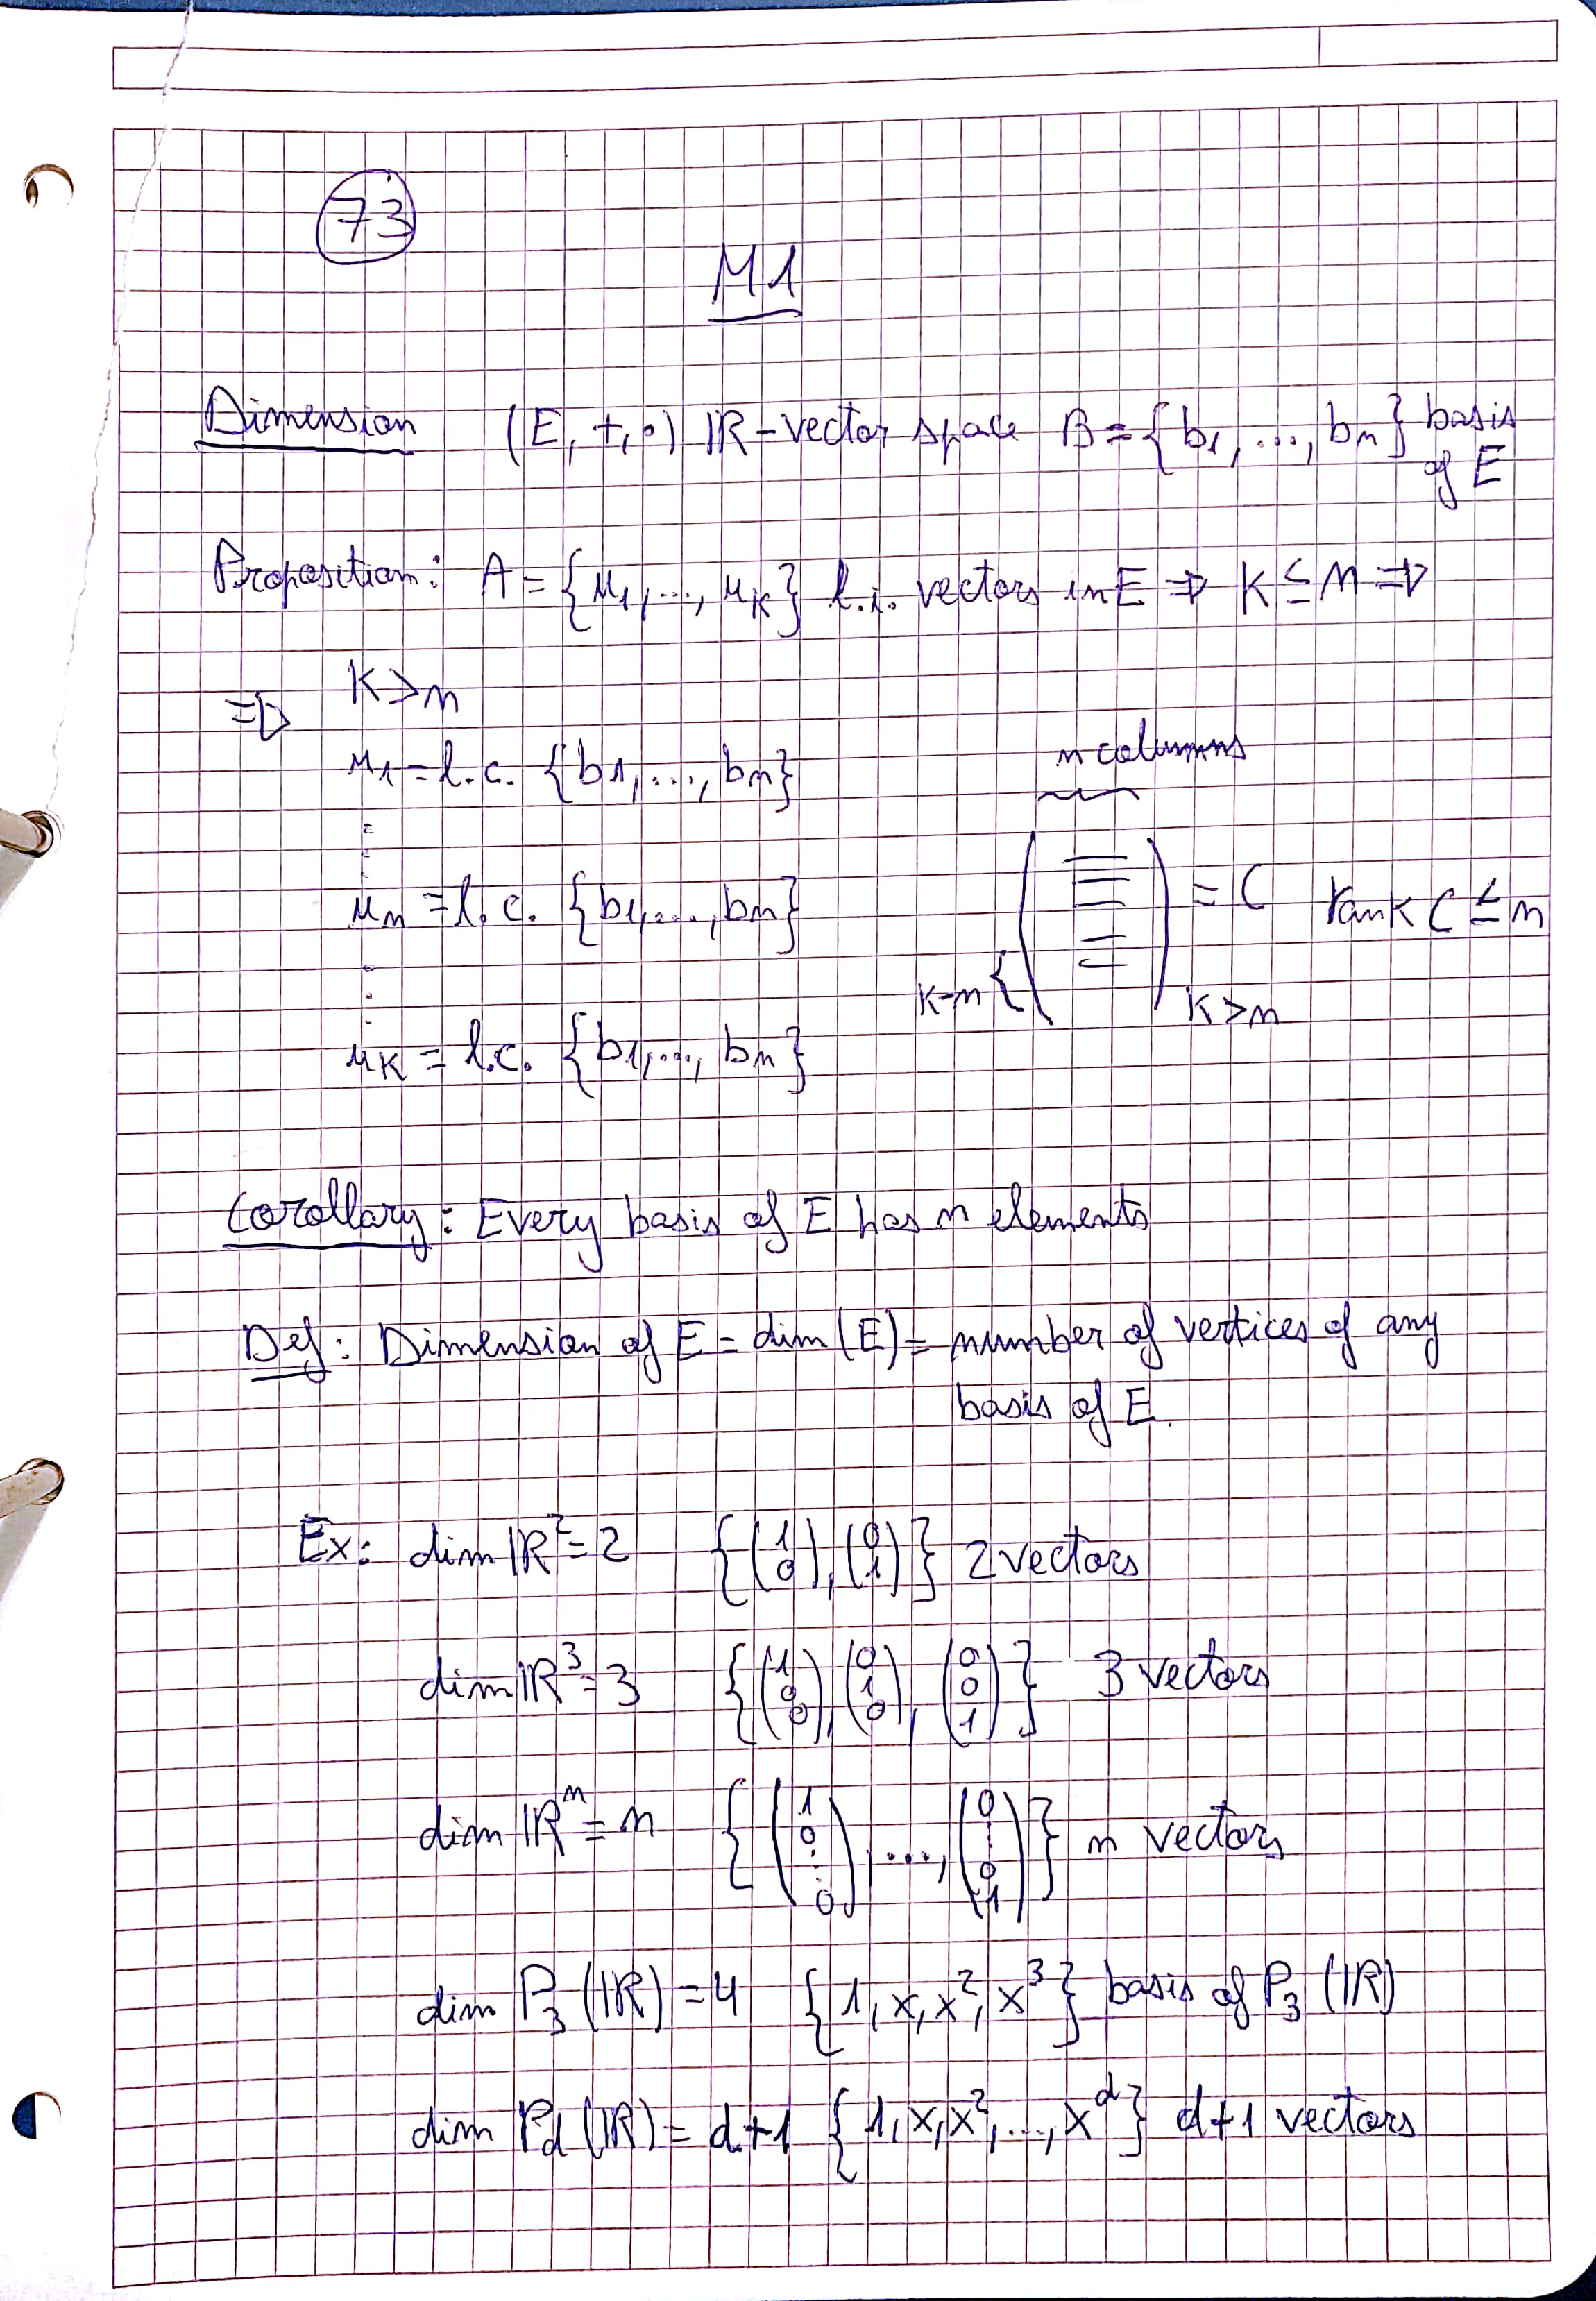 73
M1
Dimension (E, +, ∘) ℝ-vector space B = {b1, ..., bn} basis
of E
Proposition: A = {u1, ..., uk} l.i. vectors in E ⇒ K ≤ n ⇒
⇒ K > n
u1 = l.c. {b1, ..., bn}
n columns
⋮
un = l.c. {b1, ..., bn}
= C rank C ≤ n
⋮
K-n { K > n
uK = l.c. {b1, ..., bn}
Corollary: Every basis of E has n elements
Def: Dimension of E = dim (E) = number of vertices of any
basis of E.
Ex: dim ℝ² = 2 {(1 0), (0 1)} 2 vectors
dim ℝ³ = 3 {(1 0 0), (0 1 0), (0 0 1)} 3 vectors
dim ℝⁿ = n {(1 0 ⋮ 0), ..., (0 ⋮ 0 1)} n vectors
dim P₃ (ℝ) = 4 {1, x, x², x³} basis of P₃ (ℝ)
dim Pd (ℝ) = d+1 {1, x, x², ..., x^d} d+1 vectors